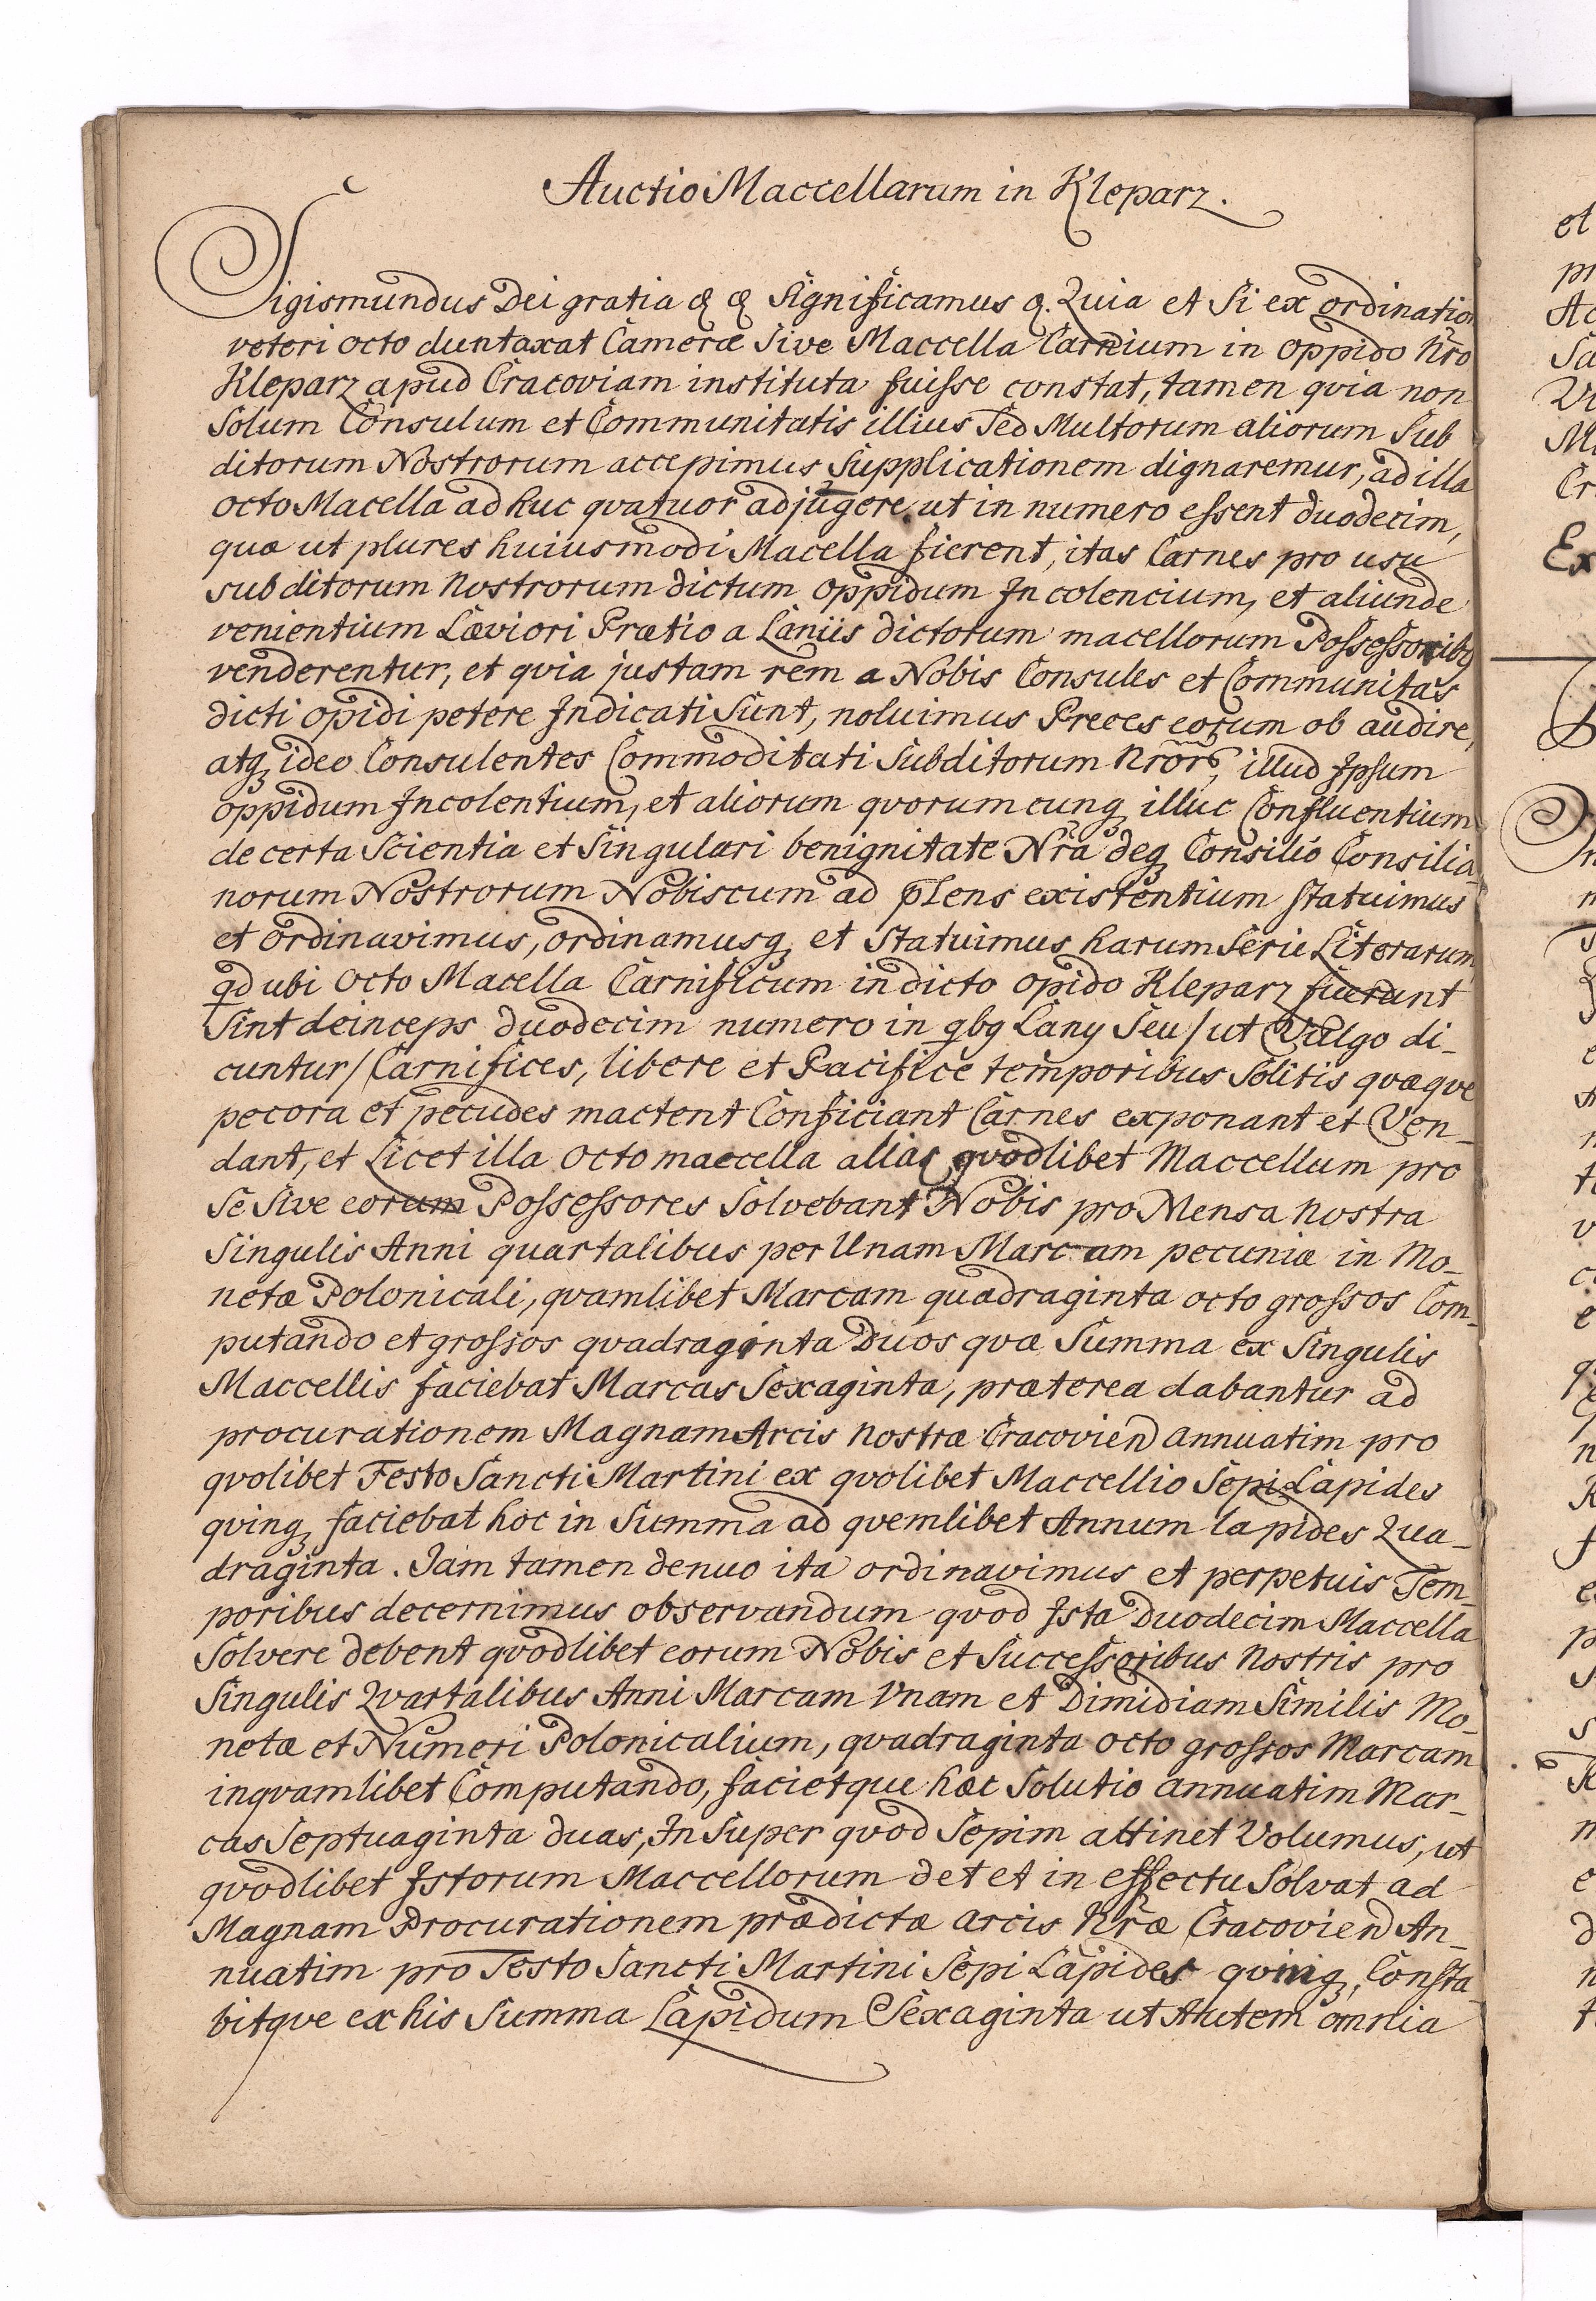 Auctio Maccellarum in Kleparz.
Sigismundus Dei gratia & & Significamus q. Quia et Si ex ordination
veteri octo duntaxat Cameræ Sive Maccella Carnium in oppido Nr̃o
Kleparz apud Cracoviam instituta fuisse constat, tamen qvia non
Solum Consulum et Communitatis illius Sed Multorum aliorum Sub
ditorum Nostrorum accepimus Supplicationem dignaremur, ad illa
octo Macella ad huc qvatuor adjugere ut in numero essent duodecim,
quæ ut plures huiusmodi Macella fierent, itas Carnes pro usu
subditorum Nostrorum dictum oppidum Incolencium, et aliunde
venientium Læviori Prætio a Laniis dictorum macellorum Possessoribq
venderentur, et qvia justam rem a Nobis Consules et Communitas
dicti opidi petere Indicati Sunt, noluimus Preces eorum ob audire,
atq ideo Consulentes Commoditati Subditorum Nror̃, illud Ipsum
oppidum Incolentium, et aliorum qvorumcunq illuc Confluentium
de certa Scientia et Singulari benignitate Nr̃a deq Consilio Consilia-
norum Nostrorum Nobiscum ad p̄sens existentium statuimus
et ordinavimus, ordinamusq et statuimus harum Serie Literarum
qd ubi octo Macella Carnificum in dicto opido Kleparz fuerant
Sint deinceps duodecim numero in qbq Lany Seu / ut Vulgo di-
cuntur / Carnifices, libere et Pacifice temporibus Solitis quæque
pecora et pecudes mactent Conficiant Carnes exponant et Ven-
dant, et Licet illa octo maccella alias qvodlibet Maccellum pro
Se Sive eorum Possessores Solvebant Nobis pro Mensa nostra
Singulis Anni quartalibus per Unam Marcam pecuniæ in Mo-
netæ Polonicali, qvamlibet Marcam quadraginta octo grossos Com-
putando et grossos qvadraginta Duos qvæ Summa ex Singulis
Maccellis faciebat Marcas Sexaginta, præterea dabantur ad
procurationem Magnam Arcis nostræ Cracovien annuatim pro
qvolibet Festo Sancti Martini ex qvolibet Maccellio Sepi Lapides
qvinq faciebat hoc in Summa ad qvemlibet Annum lapides Qua-
draginta. Jam tamen denuo ita ordinavimus et perpetuis Tem-
poribus decernimus observandum qvod Ista Duodecim Maccella
Solvere debent qvodlibet eorum Nobis et Successoribus Nostris pro
Singulis Qvartalibus Anni Marcam Vnam et Dimidiam Similis Mo-
netæ et Numeri Polonicalium, qvadraginta octo grossos Marcam
inqvamlibet Computando, facietque hæc Solutio annuatim Mar-
cas Septuaginta duas, In Super qvod Sepim attinet Volumus, ut
qvodlibet Istorum Maccellorum det et in effectu Solvat ad
Magnam Procurationem prædictæ arcis Nr̃æ Cracovien An-
nuatim pro Festo Sancti Martini Sepi Lapides qvinq, Consta-
bitqve ex his Summa Lapidum Sexaginta ut Autem omnia